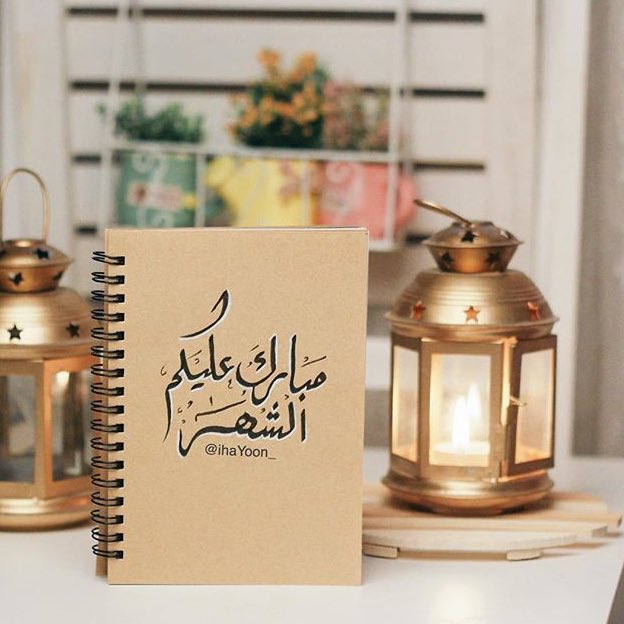 مبارك عليكم
الشهر
@ihaYoon_